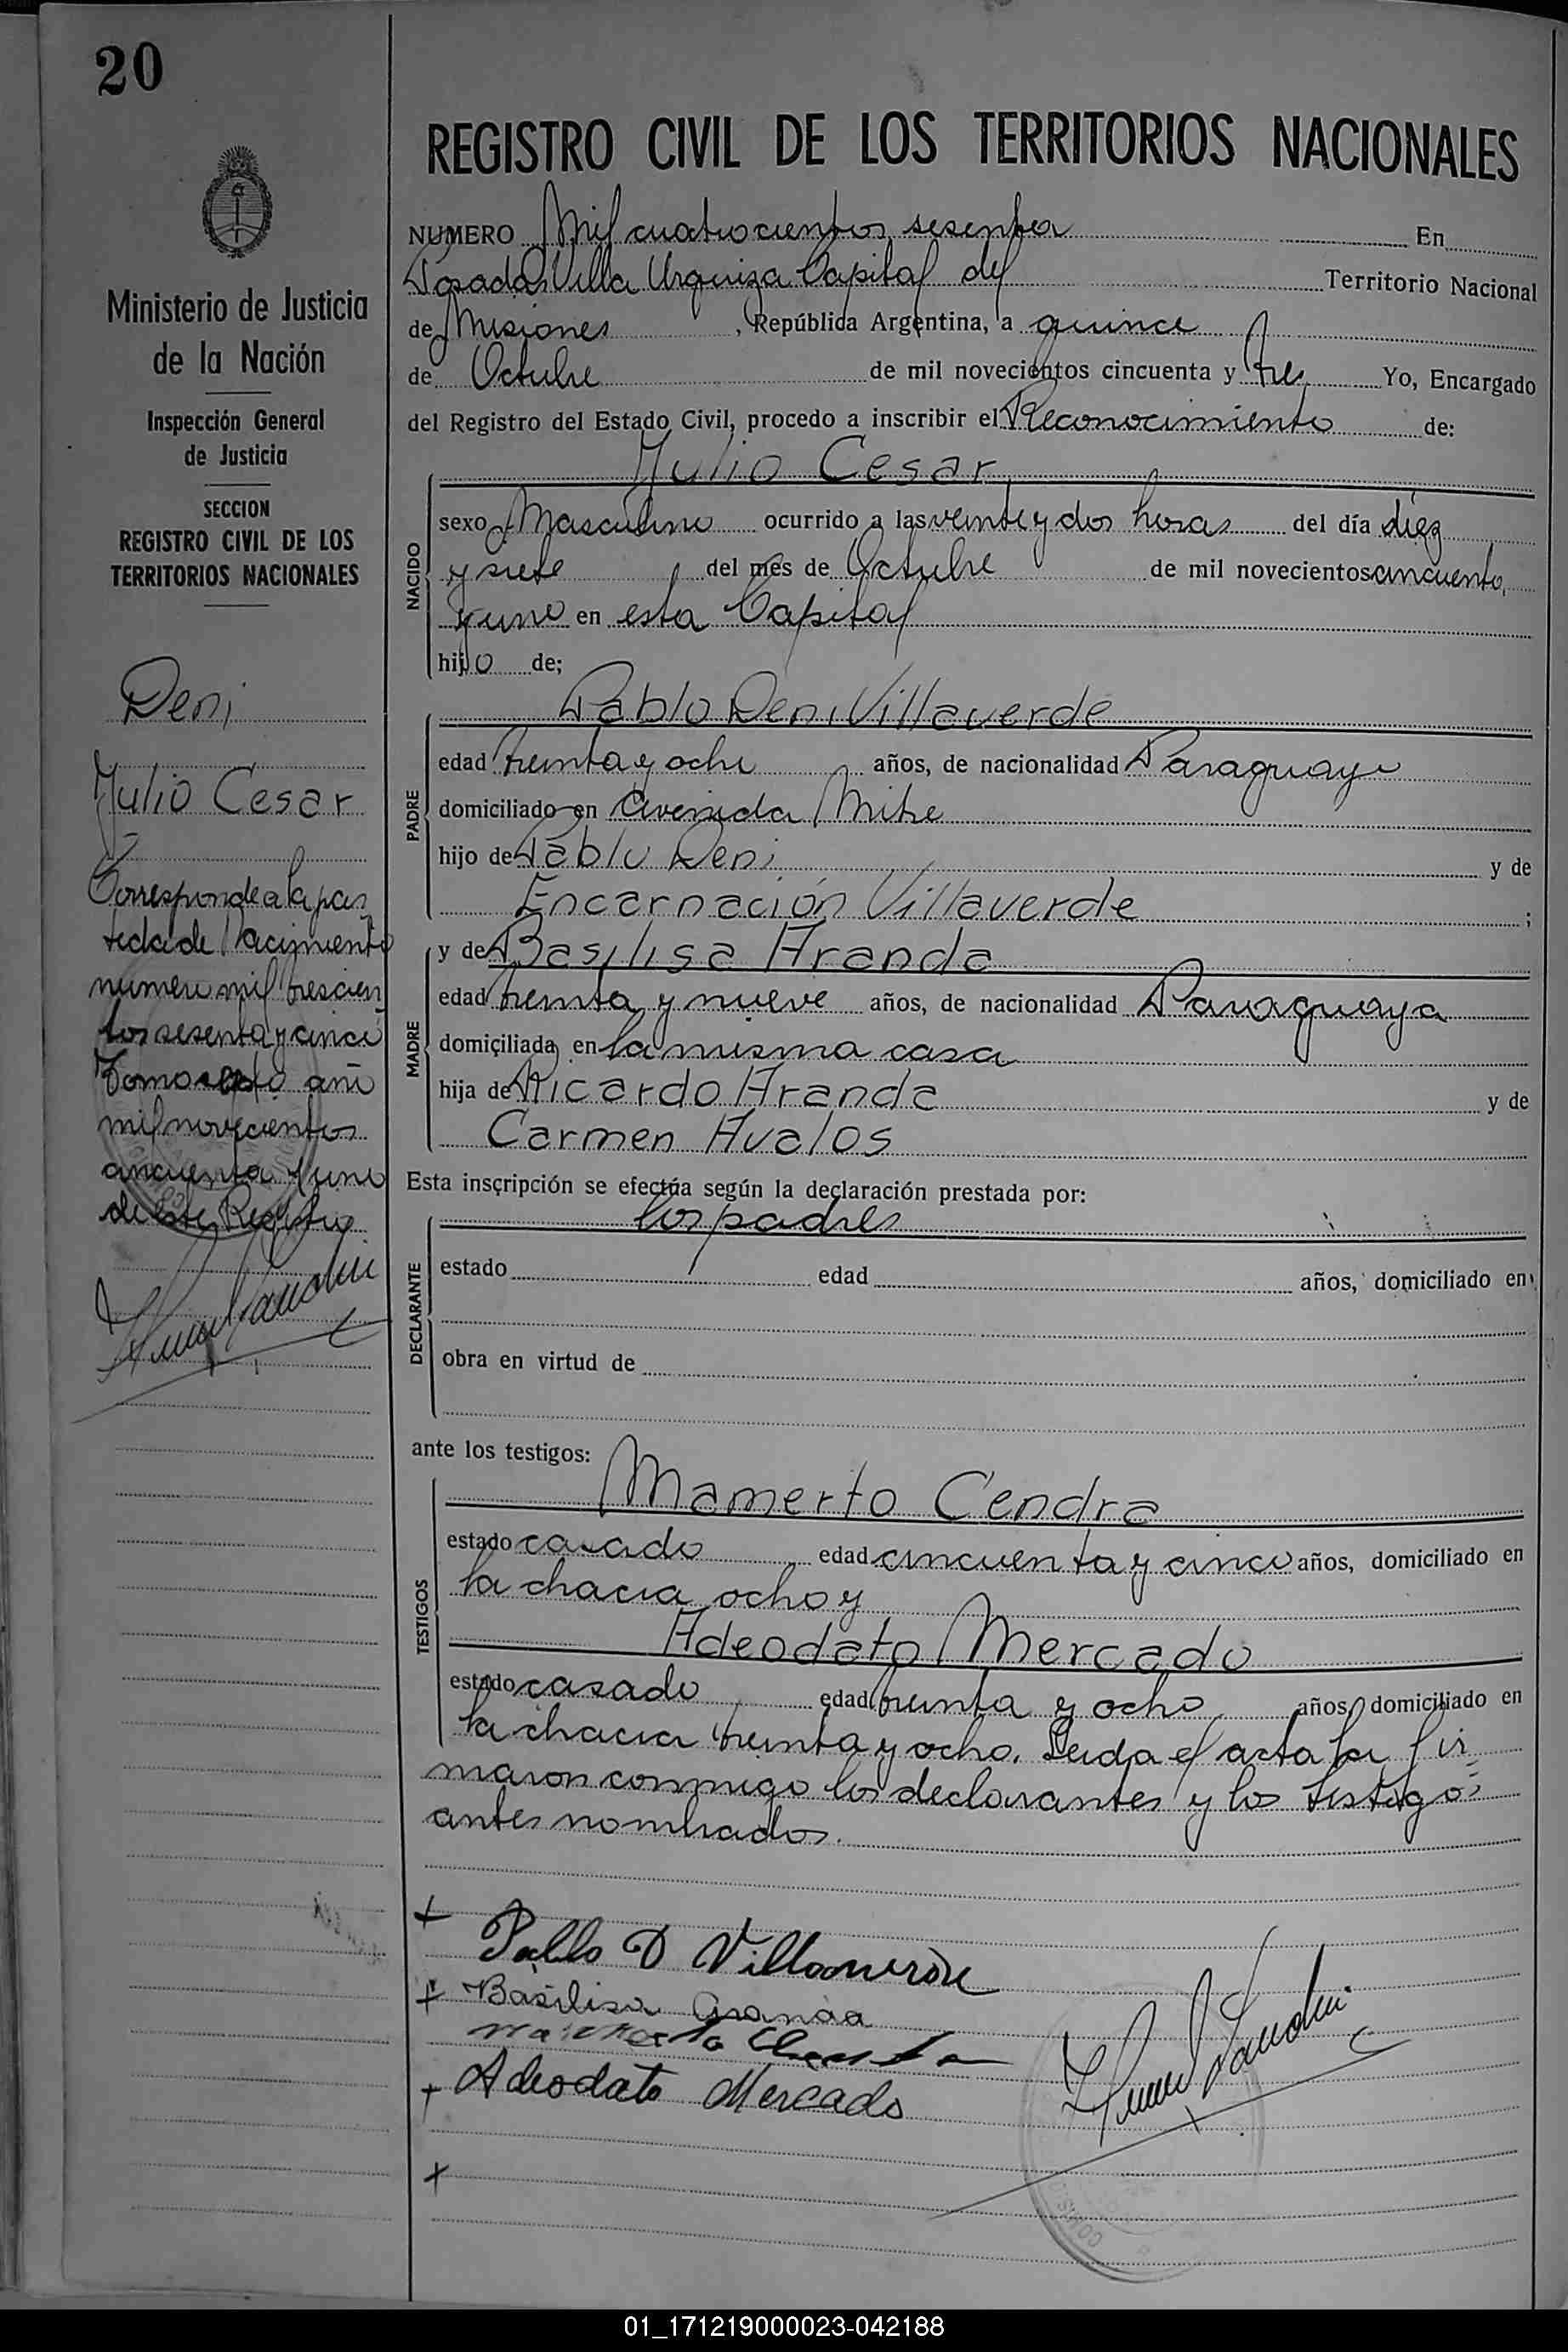 20
Ministerio de Justicia
de la Nación
Inspección General
de Justicia
SECCION
REGISTRO CIVIL DE LOS
TERRITORIOS NACIONALES
Deni
Julio Cesar
Corresponde a la par
tida de Nacimiento
numero mil trescien
tos sesenta y cinco
Tomo año
mil novecientos
cincuenta y uno
de este Registro
REGISTRO CIVIL DE LOS TERRITORIOS NACIONALES
NUMERO Mil cuatrocientos sesenta En
Posadas Villa Urquiza Capital del Territorio Nacional
de Misiones, República Argentina, a quince
de Octubre de mil novecientos cincuenta y tres Yo, Encargado
del Registro del Estado Civil, procedo a inscribir el Reconocimiento de:
Julio Cesar
NACIDO
sexo Masculino ocurrido a las veinte y dos horas del día diez
y siete del mes de Octubre de mil novecientos cincuenta
y uno en esta Capital
hijo de;
Pablo Deni Villaverde
PADRE
edad treinta y ocho años, de nacionalidad Paraguayo
domiciliado en Avenida Mitre
hijo de Pablo Deni y de
Encarnación Villaverde ;
y de Basilisa Aranda
MADRE
edad treinta y nueve años, de nacionalidad Paraguaya
domiciliada en la misma casa
hija de Ricardo Aranda y de
Carmen Avalos
Esta inscripción se efectúa según la declaración prestada por:
los padres
DECLARANTE
estado edad años, domiciliado en
obra en virtud de
ante los testigos:
Mamerto Cendra
TESTIGOS
estado casado edad cincuenta y cinco años, domiciliado en
la chacra ocho y
Adeodato Mercado
estado casado edad treinta y ocho años, domiciliado en
la chacra treinta y ocho. Leida el acta la fir
maron conmigo los declarantes y los testigos
antes nombrados.
Pablo D Villaverde
Basilisa Aranda
Adeodato Mercado
01_171219000023-042188